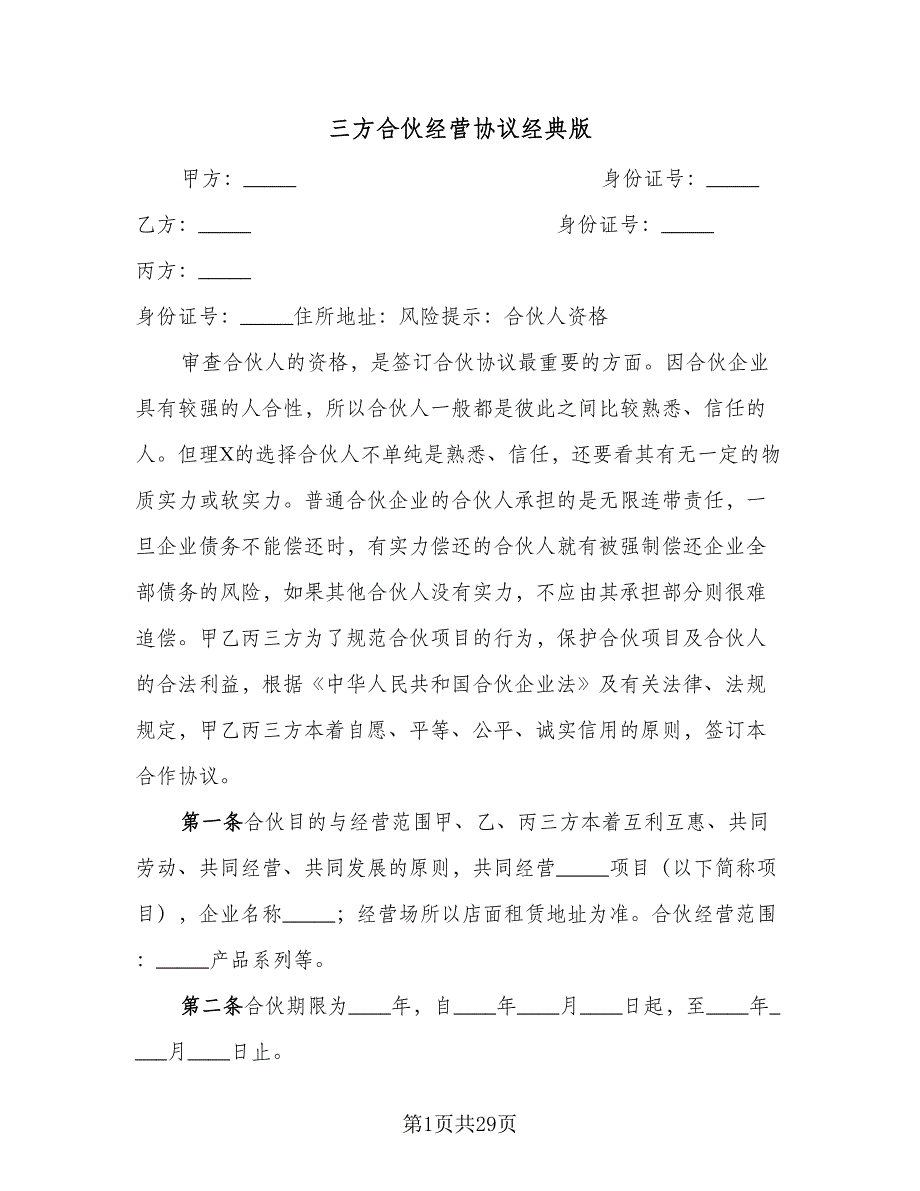 三方合伙经营协议经典版
甲方：_____ 身份证号：_____
乙方：_____ 身份证号：_____
丙方：_____
身份证号：_____住所地址：风险提示：合伙人资格
审查合伙人的资格，是签订合伙协议最重要的方面。因合伙企业
具有较强的人合性，所以合伙人一般都是彼此之间比较熟悉、信任的
人。但理X的选择合伙人不单纯是熟悉、信任，还要看其有无一定的物
质实力或软实力。普通合伙企业的合伙人承担的是无限连带责任，一
旦企业债务不能偿还时，有实力偿还的合伙人就有被强制偿还企业全
部债务的风险，如果其他合伙人没有实力，不应由其承担部分则很难
追偿。甲乙丙三方为了规范合伙项目的行为，保护合伙项目及合伙人
的合法利益，根据《中华人民共和国合伙企业法》及有关法律、法规
规定，甲乙丙三方本着自愿、平等、公平、诚实信用的原则，签订本
合作协议。
第一条合伙目的与经营范围甲、乙、丙三方本着互利互惠、共同
劳动、共同经营、共同发展的原则，共同经营_____项目（以下简称项
目），企业名称_____；经营场所以店面租赁地址为准。合伙经营范围
：_____产品系列等。
第二条合伙期限为____年，自____年____月____日起，至____年_
___月____日止。
第1页共29页